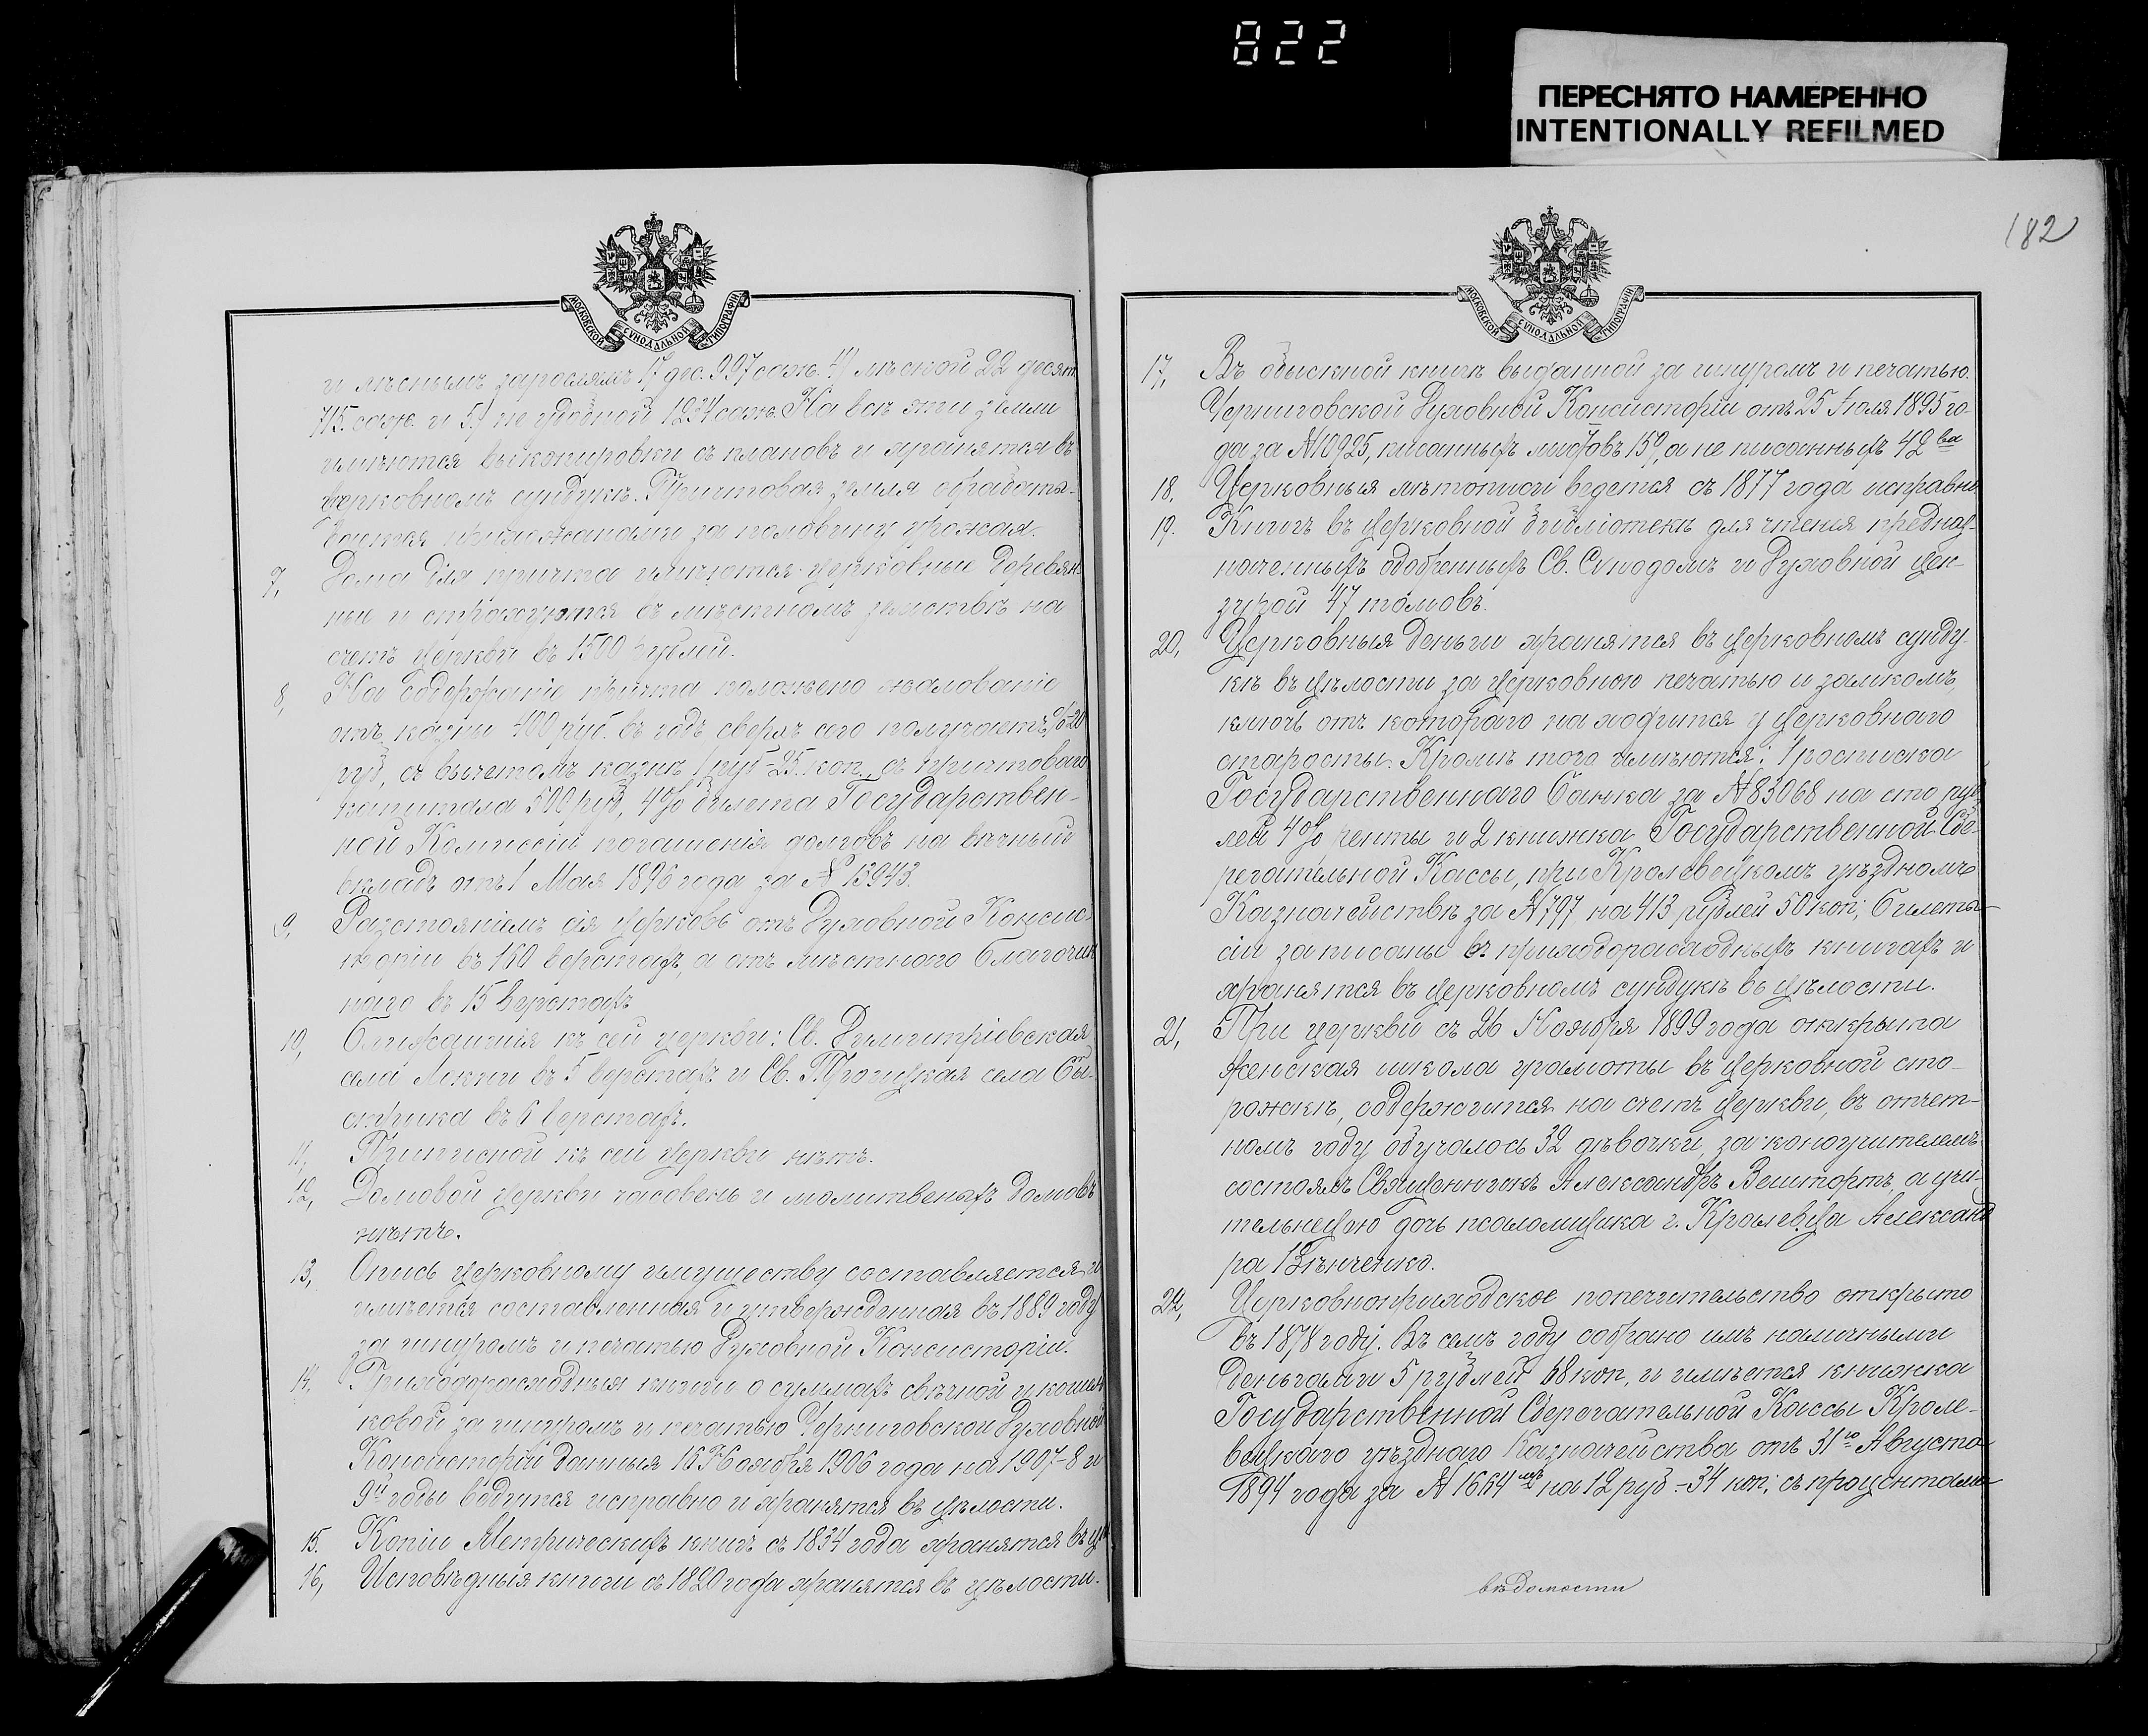 822
ПЕРЕСНЯТО НАМЕРЕННО
INTENTIONALLY REFILMED
182
МОСКОВСКОЙ СѴНОДАЛЬНОЙ ТИПОГРАФІИ
и лѣснымъ зарослямъ 17 дес. 997 саж. 4) лѣсной 22 десят.
715. саж. и 5.) не удобной 1234 саж. На всѣ эти земли
имѣются выкопировки съ плановъ и хранятся въ
церковномъ сундукѣ. Причтовая земля обработы-
вается прихожанами за половину урожая.
7, Дома для причта имѣются церковные деревян-
ные и страхуются въ мѣстномъ земствѣ на
счетъ церкви въ 1500 рублей.
8, На содержаніе причта положено жалованіе
отъ казны 400 руб. въ годъ сверхъ сего получаетъ % 20
руб, съ вычетомъ казнѣ 1 руб-25. коп., съ причтоваго
капитала 500 руб, 4% билета Государствен-
ной Коммиссіи погашенія долговъ на вѣчный
вкладъ отъ 1 Мая 1896 года за № 13943.
9, Разстояніемъ сія церковь отъ Духовной Консис-
торіи въ 160 верстахъ, а отъ мѣстного Благочин
наго въ 15 верстахъ
10, Ближайшія къ сей церкви: Св. Димитріевская
села въ 5 верстахъ и Св. Троицкая села Бы-
стрика въ 6 верстахъ.
11, Приписной къ сей церкви нѣтъ.
12, Домовой церкви часовень и молитвеныхъ домовъ
нѣтъ.
13, Опись церковному имуществу составляется, и
имѣется составленная и утвержденная въ 1889 году
за шнуромъ и печатью Духовной Консисторіи.
14. Приходорасходныя книги о суммахъ свѣчной и кошель
ковой за шнуромъ и печатью Черниговской Духовной
Консисторіи данныя 16 Ноября 1906 года на 1907-8 и
9й годы ведутся исправно и хранятся въ цѣлости.
15. Копіи Метрическихъ книгъ съ 1834 года хранятся въ
16, Исповѣдныя книги съ 1820 года хранятся въ цѣлости.
МОСКОВСКОЙ СѴНОДАЛЬНОЙ ТИПОГРАФІИ
17, Въ обыскной книгѣ выданной за шнуромъ и печатью.
Черниговской Духовной Консисторіи отъ 25 Іюля 1895 го-
да за № 10925, писанныхъ листовъ 159, а не писанныхъ 42ва
18, Церковныя лѣтописи ведется съ 1877 года исправно.
19. Книгъ въ церковной библіотекѣ для чтенія предназ-
наченныхъ одобренныхъ Св. Синодомъ и Духовной цен-
зурой 47 томовъ.
20, Церковныя деньги хранятся въ церковномъ сунду-
кѣ въ цѣлости за церковною печатью и замкомъ,
ключь отъ котораго находится у церковнаго
старосты. Кромѣ того имѣются: 1 росписка
Государственнаго Банка за № 83068 на сто руб-
лей 4% ренты и 2 книжка Государственной Сбе-
регательной Кассы, при Кролевецкомъ уѣздномъ
Казначействѣ за № 797 на 413 рублей 50 коп; билеты
сіи записаны въ приходорасходныхъ книгахъ и
хранятся въ церковномъ сундукѣ въ цѣлости.
21, При церкви съ 26 Ноября 1899 года открыта
женская школа грамоты въ церковной сто-
рожкѣ, содержится на счетъ церкви, въ отчет-
номъ году обучалось 32 дѣвочки, законоучителемъ
состоялъ Священникъ Александръ Вештортъ, а учи-
тельницею дочь псаломщика г. Кролевца Александ
ра
22, Церковноприходское попечительство открыто
въ 1878 году. Въ семъ году собрано имъ наличными
деньгами 5 рублей 68 коп, и имѣется книжка
Государственной Сберегательной Кассы Кроле-
вецкаго уѣзднаго Казначейства отъ 31го Августа
1894 года за № 1664 на 12 руб-34 коп; съ процентами
вѣдомости